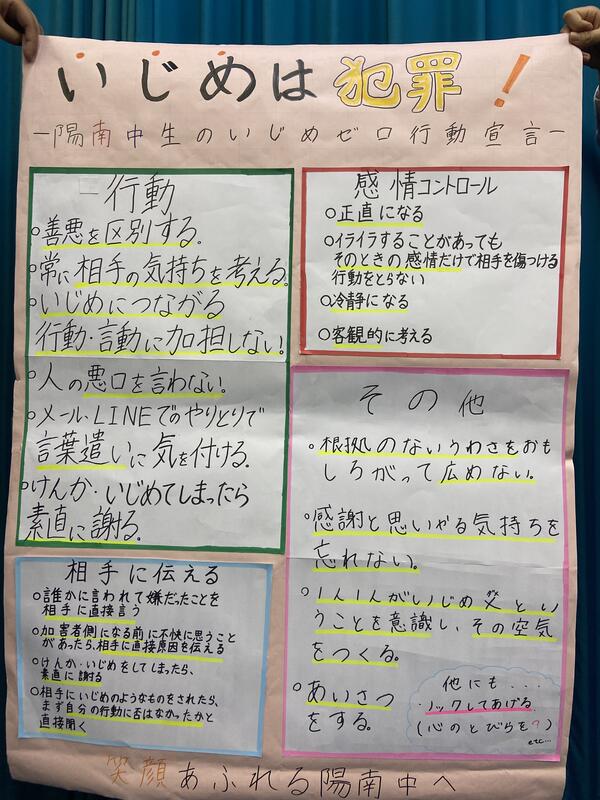 いじめは犯罪!
ー陽南中生のいじめゼロ行動宣言ー
行動
○善悪を区別する。
○常に相手の気持ちを考える。
○いじめにつながる
行動・言動に加担しない!
○人の悪口を言わない!
○メール・LINEでのやりとりで
言葉遣いに気を付ける。
○けんか・いじめてしまったら
素直に謝る。
相手に伝える
○誰かに言われて嫌だったことを
相手に直接言う
○加害者側になる前に不快に思うこと
があったら、相手に直接原因を伝える
○けんか・いじめをしてしまったら、
素直に謝る
○相手にいじめのようなものをされたら、
まず自分の行動に否はなかったかと
直接聞く
感情コントロール
○正直になる
○イライラすることがあっても
そのときの感情だけで相手を傷つける
行動をとらない
○冷静になる
○客観的に考える
その他
○根拠のないうわさをおも
しろがって広めない。
○感謝と思いやる気持ちを
忘れない。
○1人1人がいじめ とい
うことを意識し、その空気
をつくる。
○あいさつ
をする。
他にも....
ノックしてあげる
(心のとびらを?)
etc...
笑顔あふれる陽南中へ